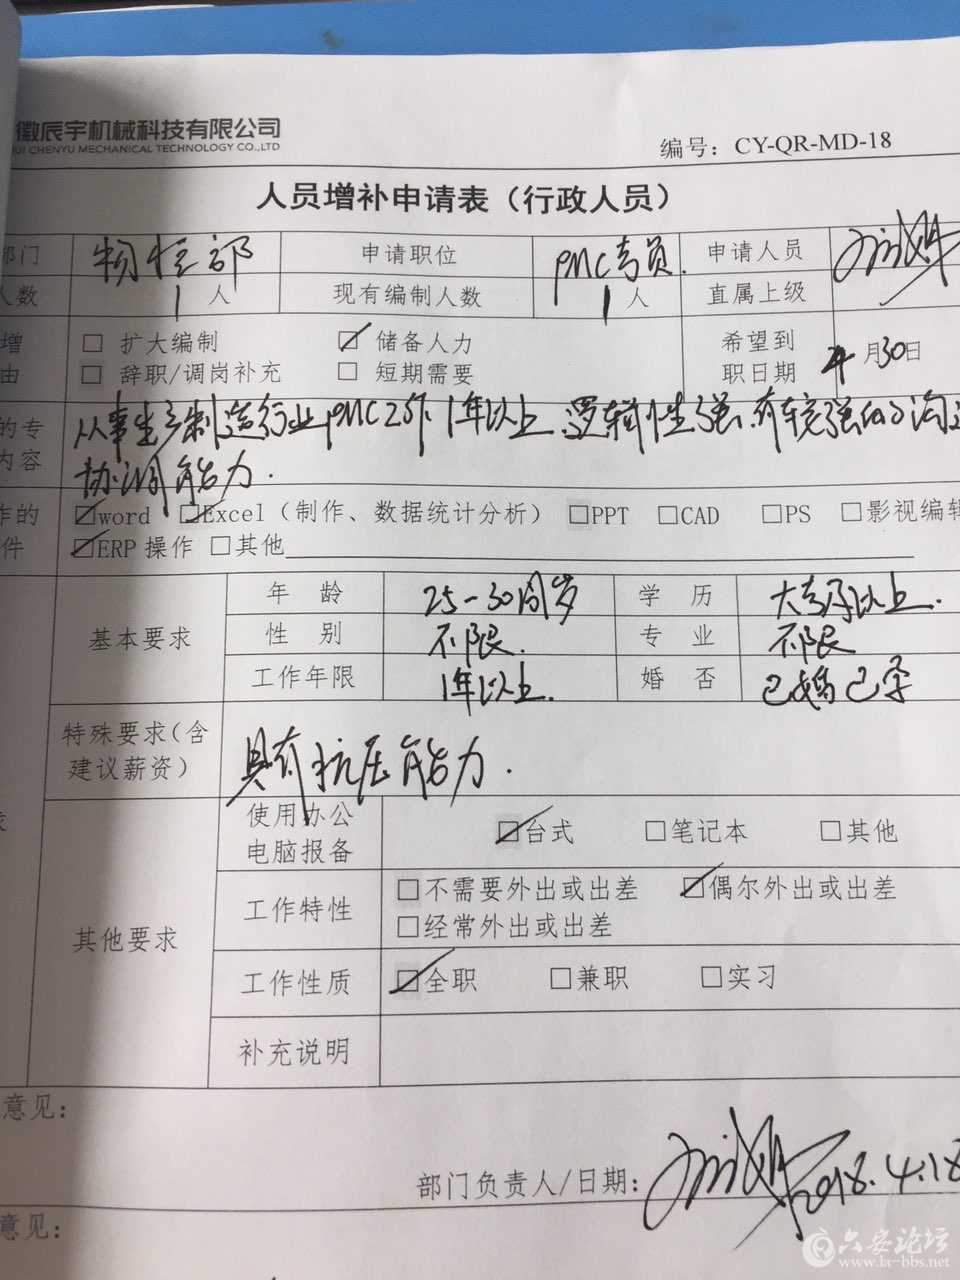 徽辰宇机械科技有限公司
UI CHENYU MECHANICAL TECHNOLOGY CO.,LTD
编号：CY-QR-MD-18
人员增补申请表（行政人员）
部门 物控部 申请职位 PMC专员. 申请人员
人数 1人 现有编制人数 1人 直属上级
增 □ 扩大编制 ☑ 储备人力 希望到
由 □ 辞职/调岗补充 □ 短期需要 职日期 4月30日
的专 从事生产制造行业PMC工作1年以上.逻辑性强.有较强的沟通
内容 协调能力.
作的 ☑word ☑Excel（制作、数据统计分析） □PPT □CAD □PS □影视编辑
件 ☑ERP 操作 □其他
基本要求
年 龄 25-30周岁 学 历 大专及以上.
性 别 不限. 专 业 不限
工作年限 1年以上. 婚 否 已婚已孕
特殊要求（含
建议薪资） 具有抗压能力.
求
其他要求
使用办公
电脑报备 ☑台式 □笔记本 □其他
工作特性 □不需要外出或出差 ☑偶尔外出或出差
□经常外出或出差
工作性质 ☑全职 □兼职 □实习
补充说明
意见：
部门负责人/日期： 2018.4.18
意见：
六安论坛
www.la-bbs.net